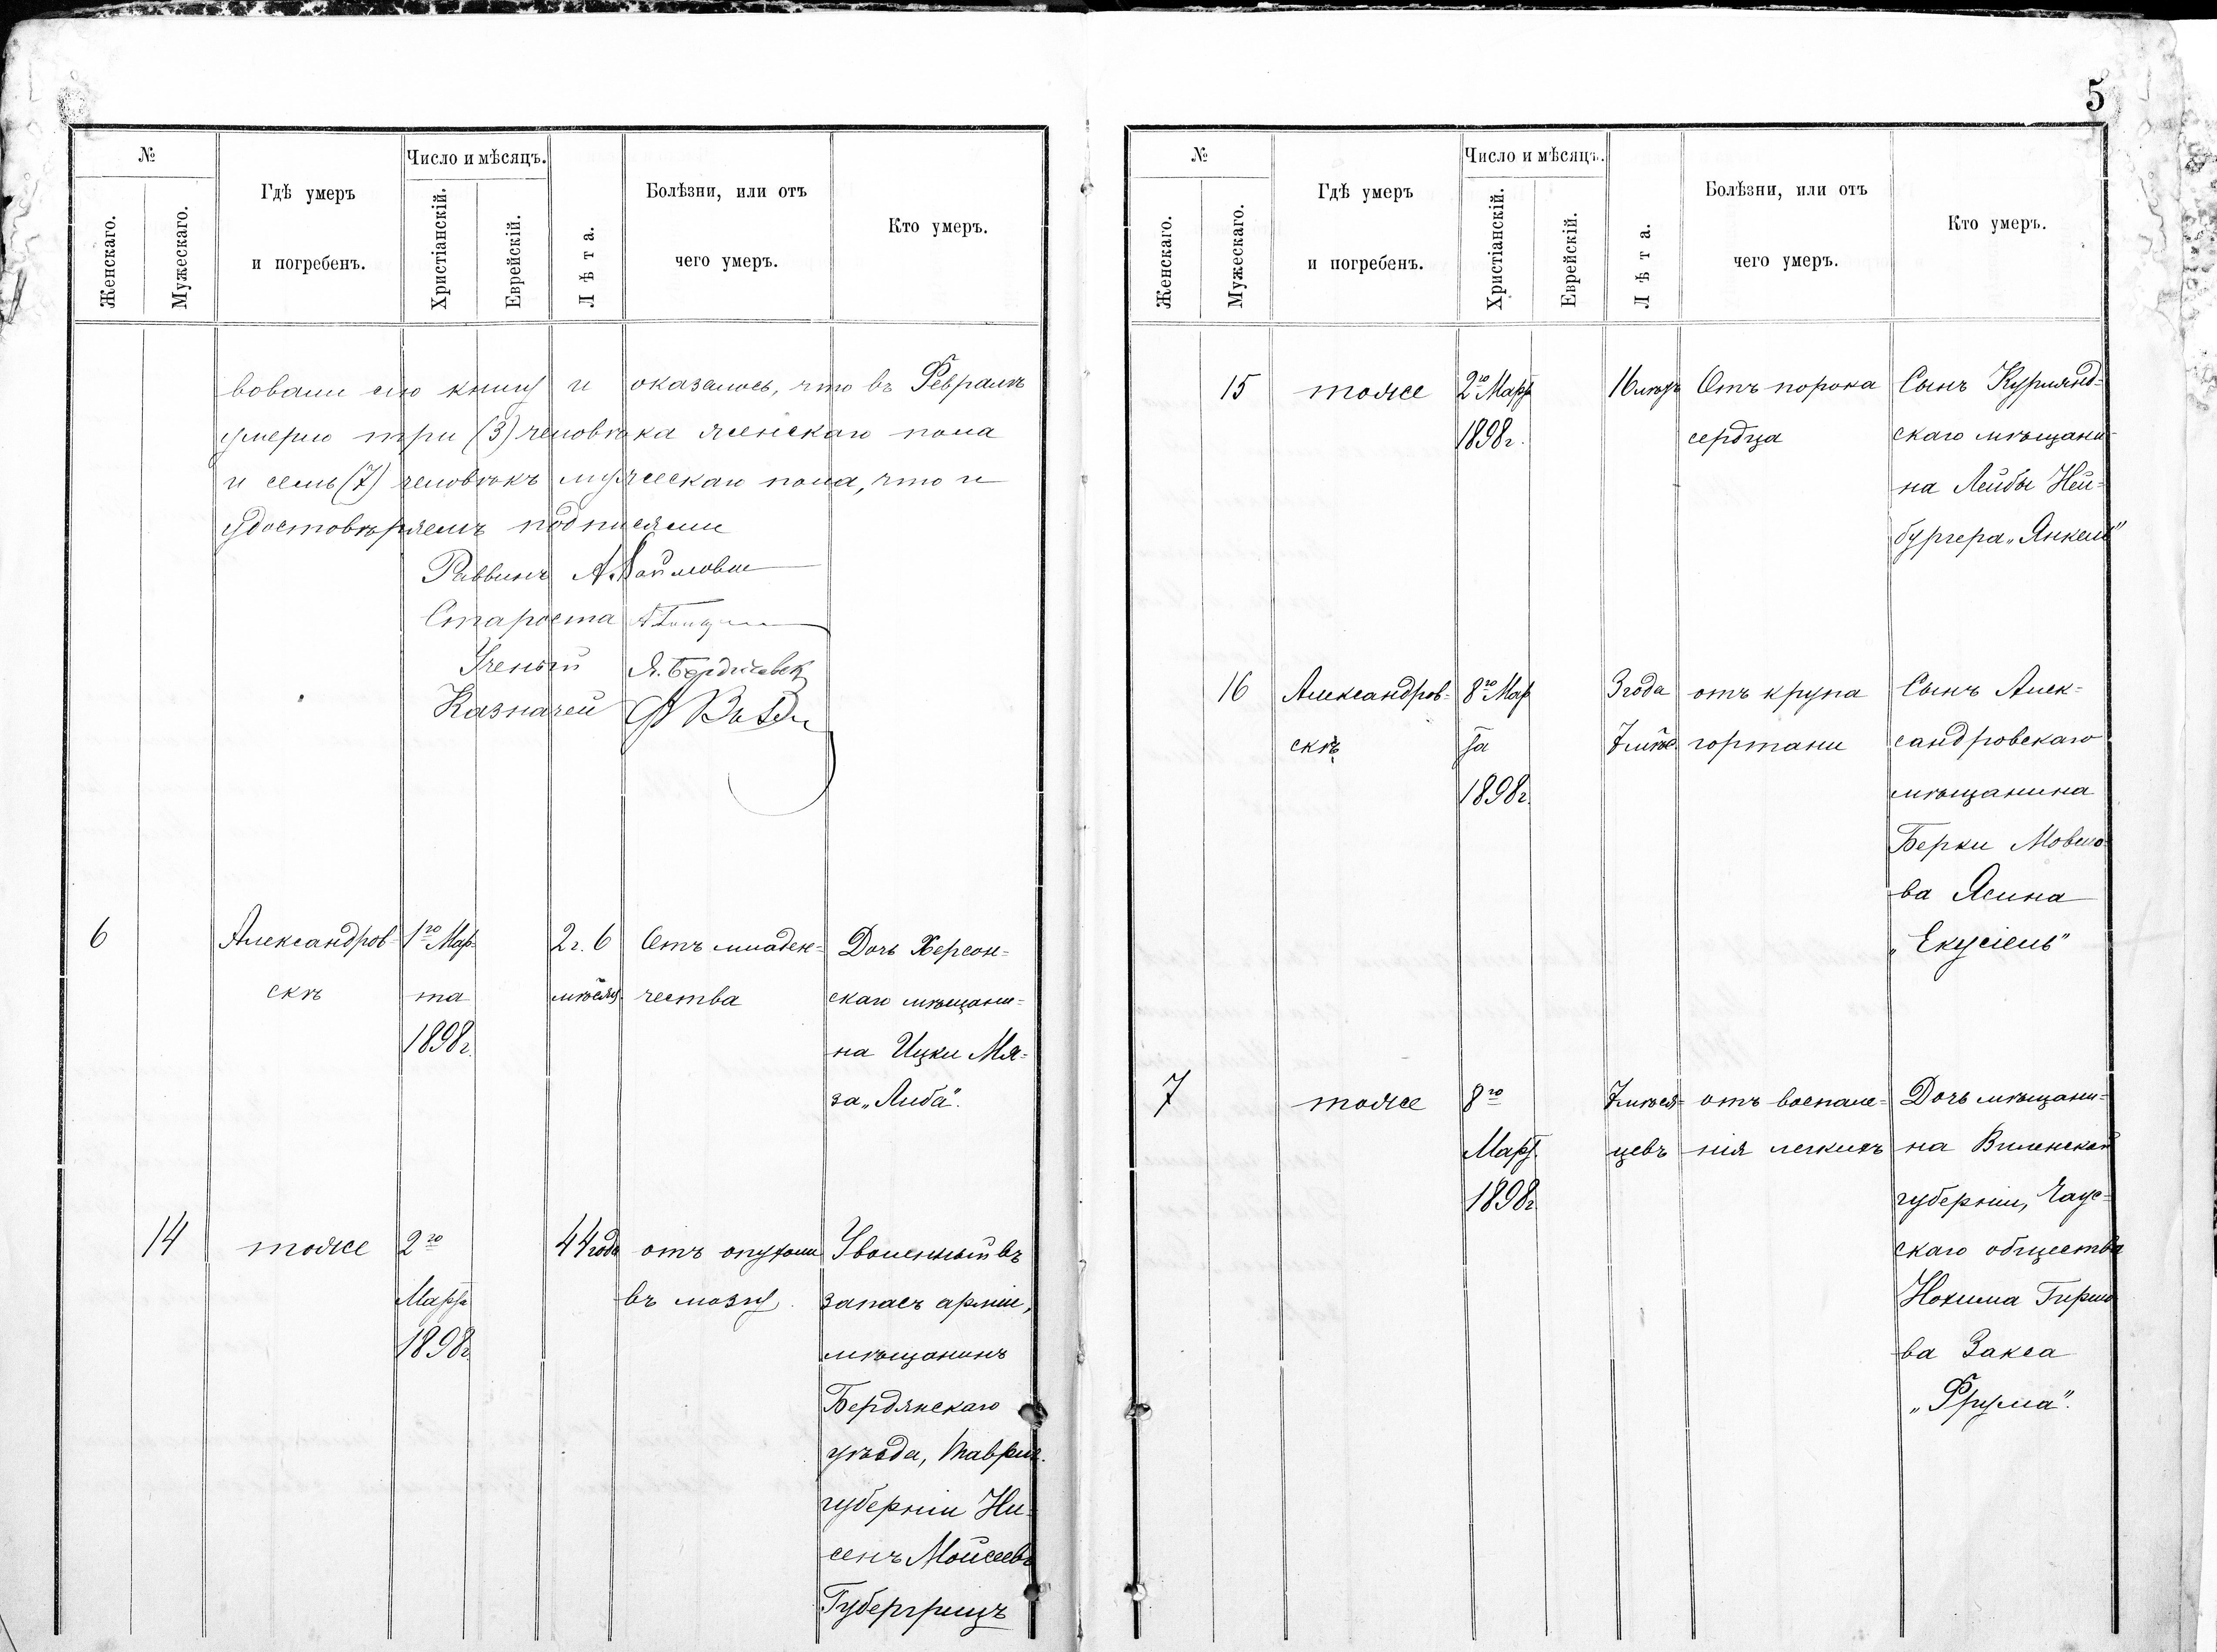 №
Число и мѣсяцъ.
Гдѣ умеръ
и погребенъ.
Болѣзни, или отъ
чего умеръ.
Кто умеръ.
Женскаго.
Мужескаго.
Христіанскій.
Еврейскій.
Лѣта.
вовали сію книгу и оказалось, что въ Февралѣ
умерло три (3) человѣка женскаго пола
и семь (7) человѣкъ мужескаго пола, что и
удостовѣряемъ подписями
Раввинъ
Староста
Ученый Я. Бердичевск
Казначей
6
Александров-
скѣ
1го Мар-
та
1898г.
2г. 6
мѣсяц.
Отъ младен-
чества
Дочь Херсон-
скаго мѣщани-
на Ицки Мя-
за „Либа".
14
тоже
2го
Марта
1898г.
44 года
отъ опухоли
въ мозгу.
Уволенный въ
запасъ арміи,
мѣщанинъ
Бердянскаго
уѣзда, Таврич.
губерніи Ни-
сенъ Мойсеевъ
Губергрицъ
5
№
Число и мѣсяцъ.
Гдѣ умеръ
и погребенъ.
Болѣзни, или отъ
чего умеръ.
Кто умеръ.
Женскаго.
Мужескаго.
Христіанскій.
Еврейскій.
Лѣта.
15
тоже
2го Марта
1898г.
16 лѣтъ
Отъ порока
сердца
Сынъ Курлянд-
скаго мѣщани-
на Лейбы Ней-
бургера „Янкель"
16
Александров-
скѣ
8го Мар
та
1898г.
3 года
7 мѣс.
отъ крупа
гортани
Сынъ Алек-
сандровскаго
мѣщанина
Берки Мовшо-
ва Ясина
„Екусіель"
7
тоже
8го
Март.
1898г.
7 мѣся-
цевъ
отъ воспале-
нія легкихъ
Дочь мѣщани-
на Виленской
губерніи,
скаго общества
Нохима Гиршо
ва Закса
„Фрума".